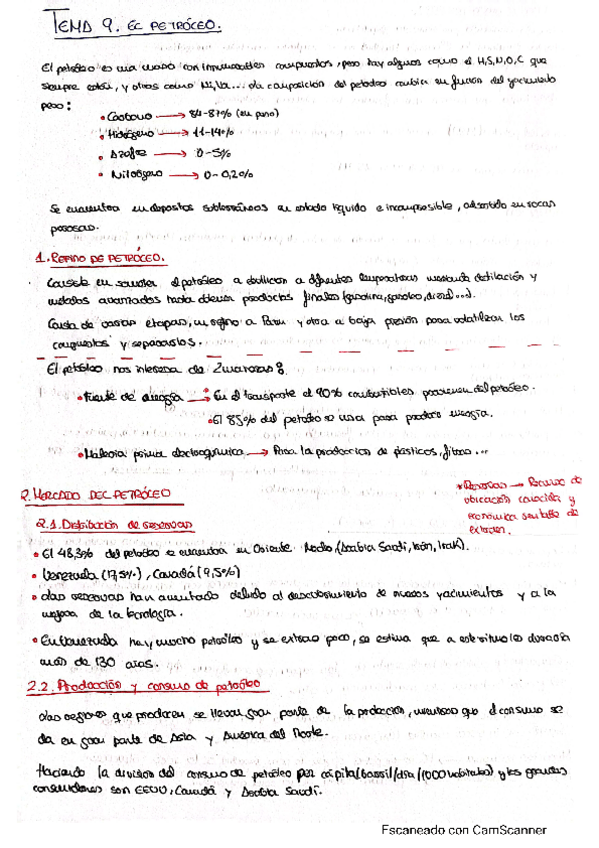 TEMA 9. EL PETRÓLEO.
El petróleo es una mezcla con innumerables compuestos, pero hay algunos como el H, S, N, O, C que
siempre están, y otros como Ni, Va... La composición del petróleo cambia en función del yacimiento
pero:
• Carbono → 84-87% (en peso)
• Hidrógeno → 11-14%
• Azufre → 0-5%
• Nitrógeno → 0-0,20%
Se encuentra en depósitos subterráneos en estado líquido e incompresible, adsorbido en rocas
porosas.
1. REFINO DE PETRÓLEO.
Consiste en someter el petróleo a ebullición a diferentes temperaturas mediante destilación y
métodos avanzados hasta obtener productos finales (gasolina, gasoleo, diesel...).
Consta de varias etapas, un refino a Patm y otra a baja presión para volatilizar los
compuestos y separarlos.
El petróleo nos interesa de 2 maneras:
• Fuente de energía → • En el transporte el 90% combustibles provienen del petróleo.
• El 85% del petróleo se usa para producir energía.
• Materia prima → Para la produccion de plásticos, fibras...
2. MERCADO DEL PETRÓLEO
* Reservas → Recurso de
ubicación conocida y
económica rentable de
extraer.
2.1. Distribución de reservas
• El 48,3% del petróleo se encuentra en Oriente Medio, (Arabia Saudí, Irán, Irak).
• Venezuela (17,5%), Canadá (9,5%)
• Las reservas han aumentado debido al descubrimiento de nuevos yacimientos y a la
mejora de la tecnología.
• En Venezuela hay mucho petróleo y se extrae poco, se estima que a este ritmo duraría
más de 130 años.
2.2. Producción y consumo de petróleo
Las regiones que producen se llevan gran parte de la producción, mientras que el consumo se
da en gran parte de Asia y América del Norte.
Haciendo la división del consumo de petróleo per cápita (barril/día/1000 habitantes) y los grandes
consumidores son EEUU, Canadá y Arabia Saudí.
Escaneado con CamScanner